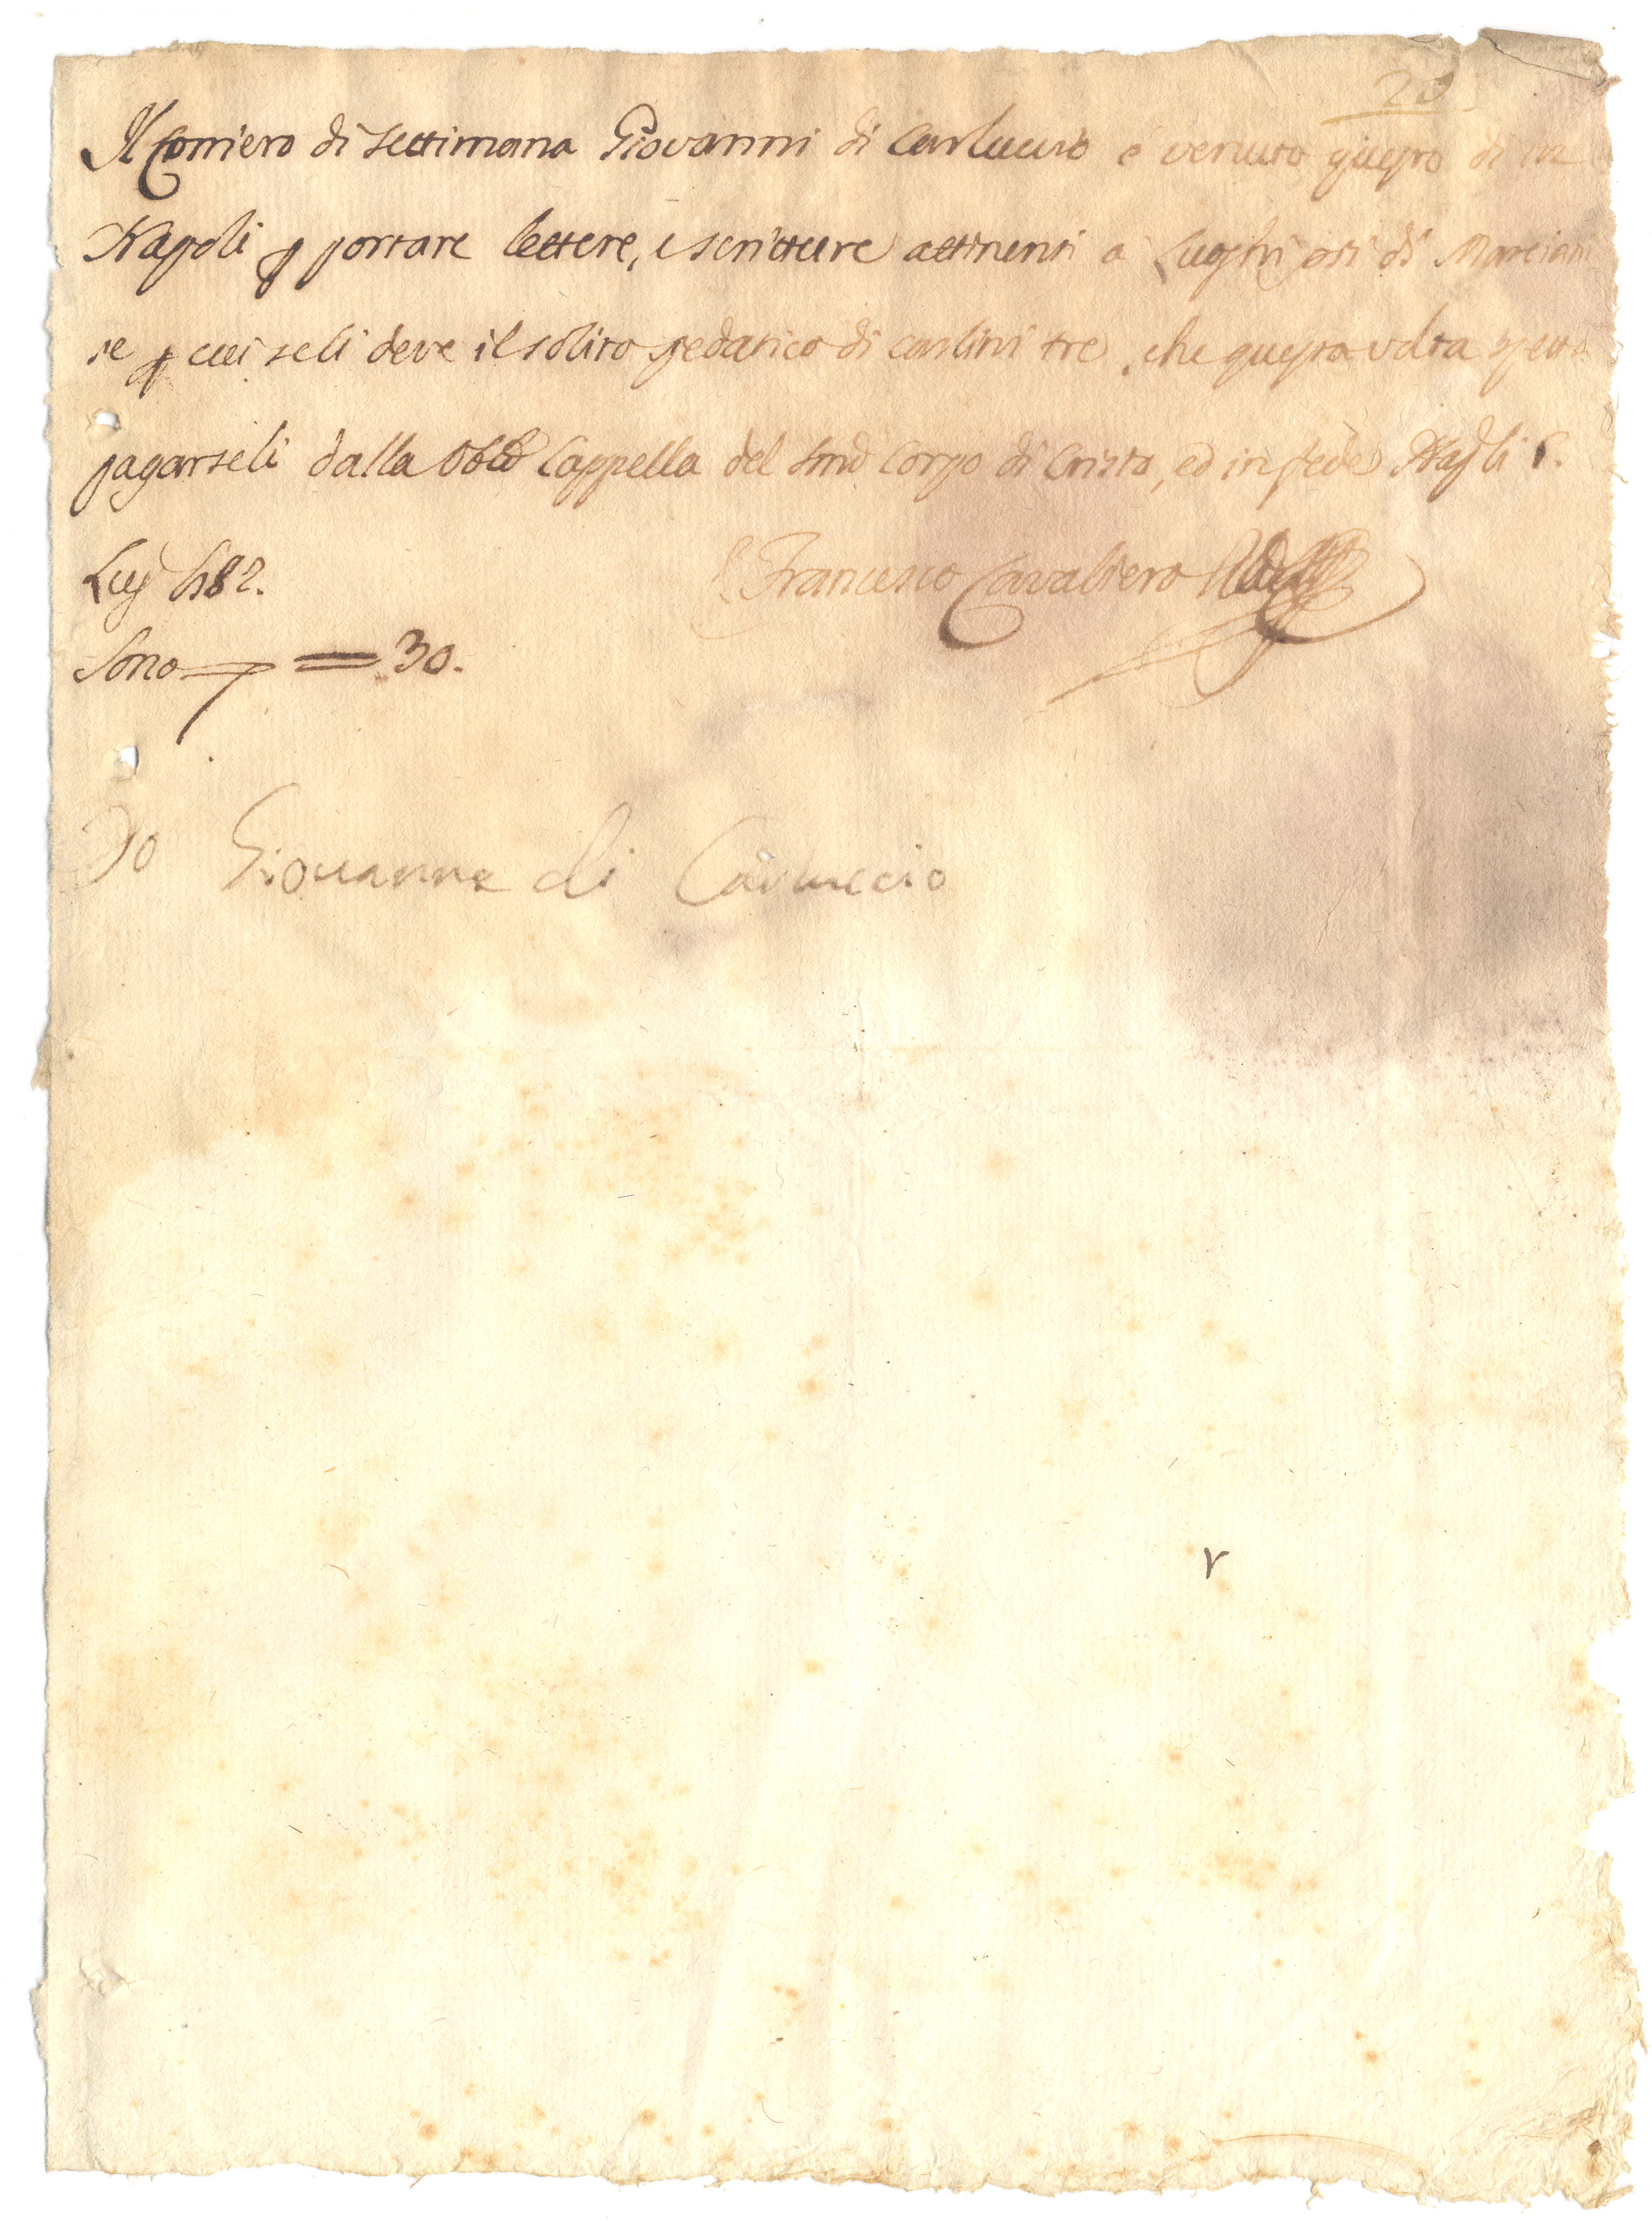 23
Il Corriero di settimana Giovanni di Carluccio è venuto questo dì in
Napoli p portare lettere, e scritture attinenti a Luoghi pii di Marciani
se p cui seli deve il solito pedatico di carlini tre, che questa volta spetta
pagarseli dalla Cappella del SSmo Corpo di Cristo, ed in fede Napoli 6.
Lug 1782.
Francesco Cavaliero
Sono = 30.
Io Giovanne di Carluccio